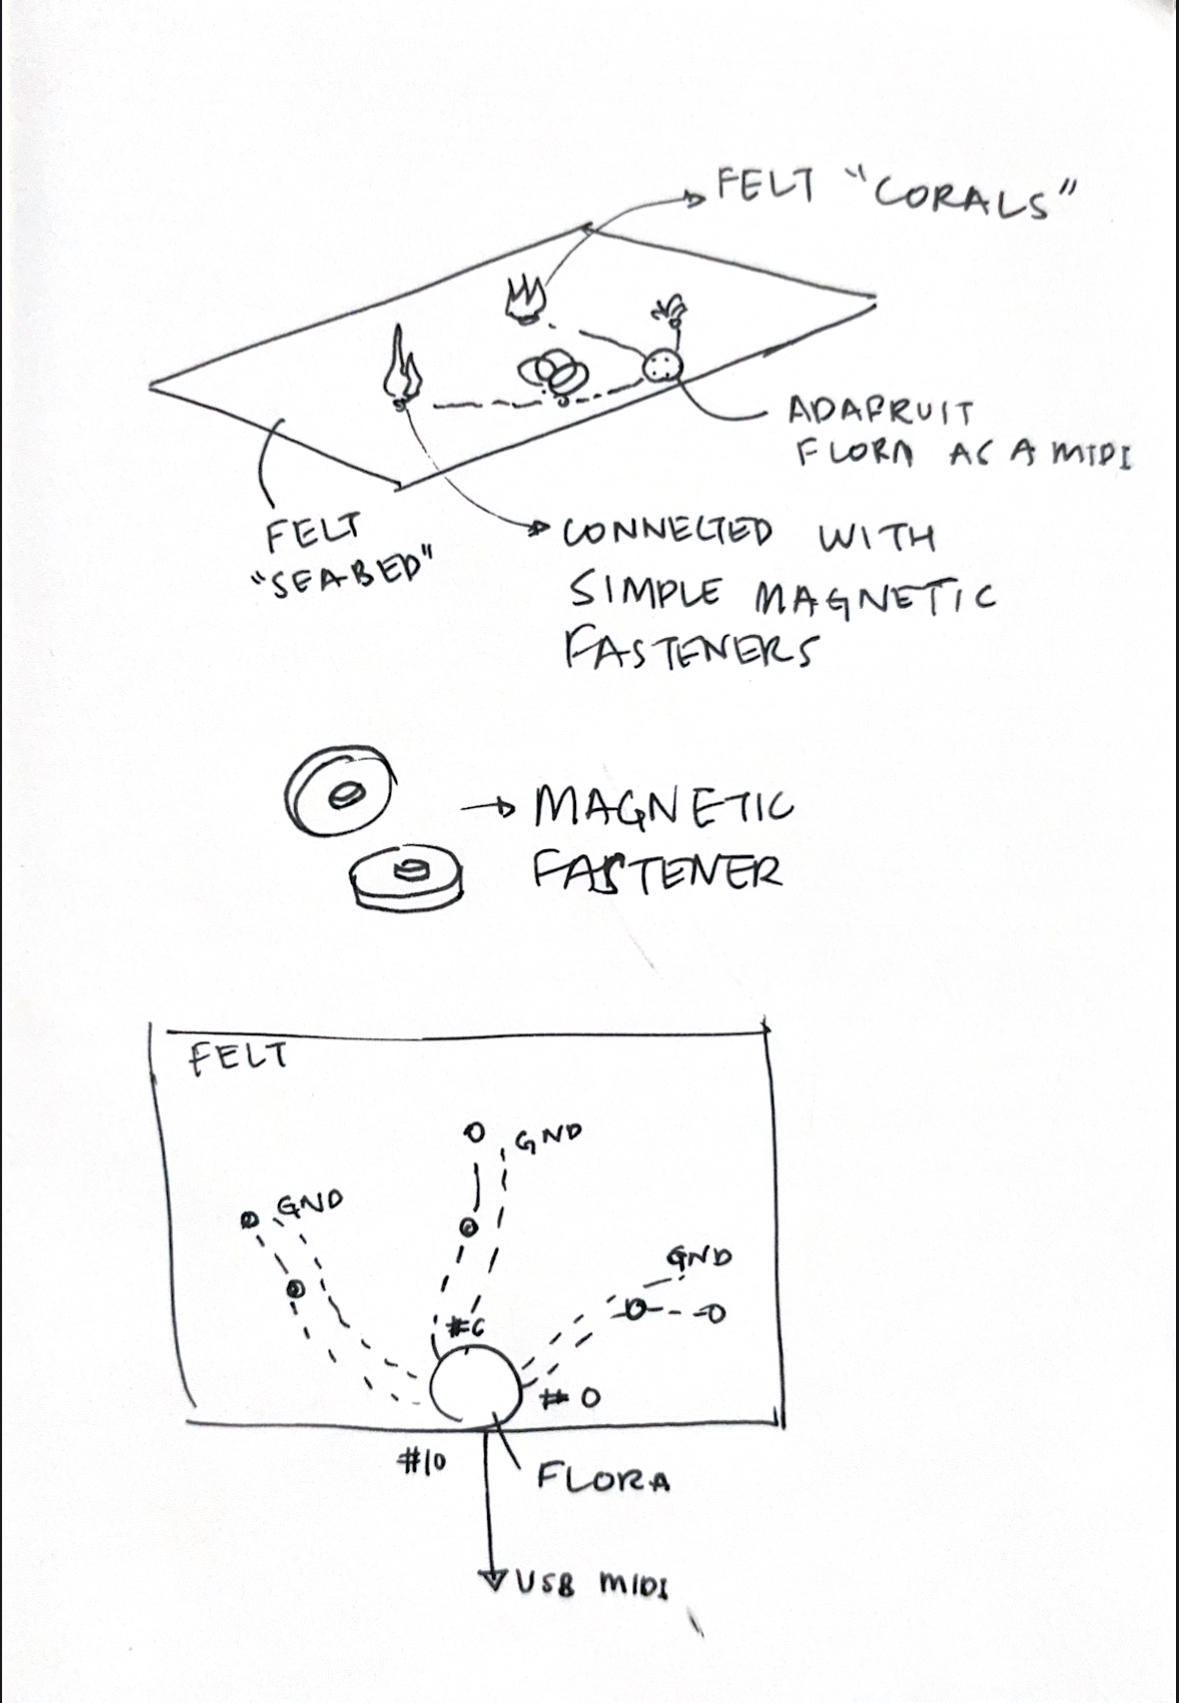 FELT "CORALS"
ADAFRUIT
FLORA AS A MIDI
FELT
"SEABED"
CONNECTED WITH
SIMPLE MAGNETIC
FASTENERS
MAGNETIC
FASTENER
FELT
GND
GND
GND
#6
#0
#10
FLORA
USB MIDI